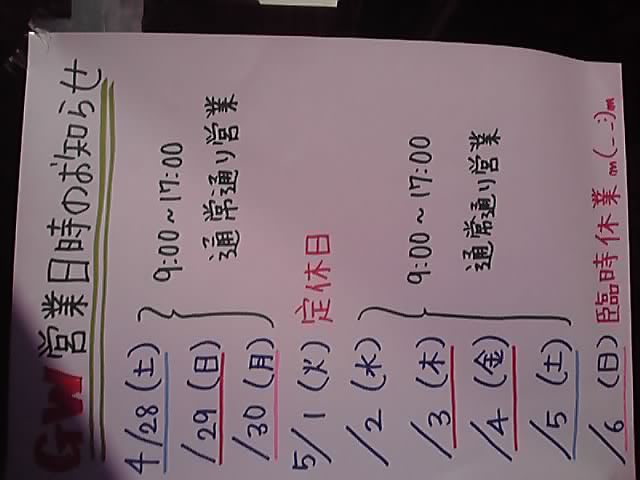 GW営業日時のお知らせ
4/28(土)
/29(日)
/30(月)
9:00～17:00
通常通り営業
5/1(火) 定休日
/2(水)
/3(木)
/4(金)
/5(土)
9:00～17:00
通常通り営業
/6(日) 臨時休業m(_ _;)m